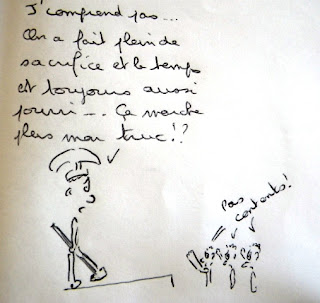 J'comprend pas...
On a fait plein de
sacrifice et le temps
est toujours aussi
pourri... Ça marche
plus mon truc!?
pas
contents!